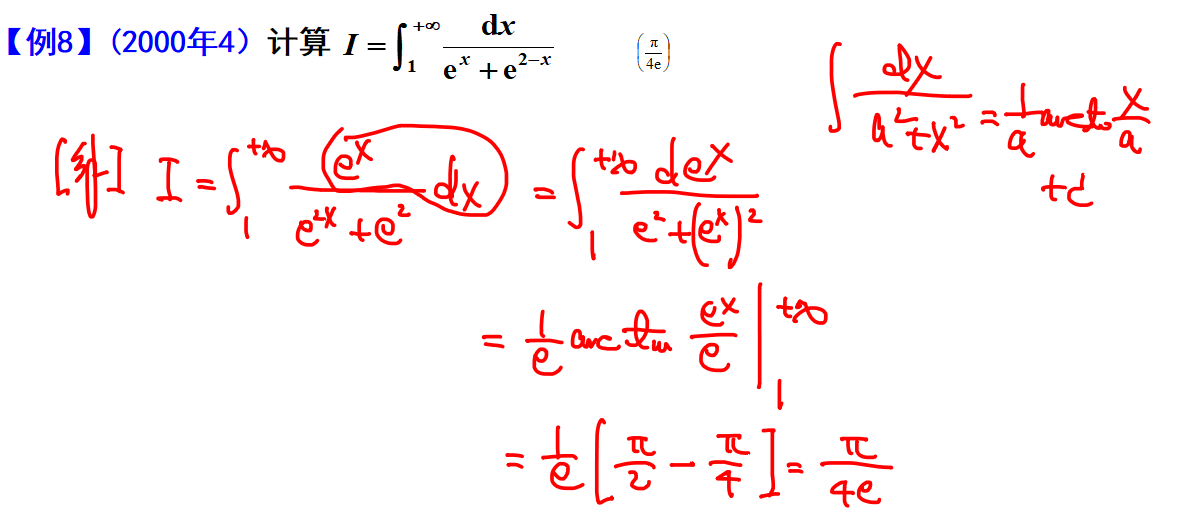 【例8】(2000年4) 计算 I = ∫₁^{+∞} dx / (eˣ + e²⁻ˣ) (π/4e)
∫ dx / (a² + x²) = 1/a arctan x/a + C
[解] I = ∫₁^{+∞} eˣ / (e²ˣ + e²) dx = ∫₁^{+∞} deˣ / (e² + (eˣ)²)
= 1/e arctan eˣ/e |₁^{+∞}
= 1/e [π/2 − π/4] = π/4e